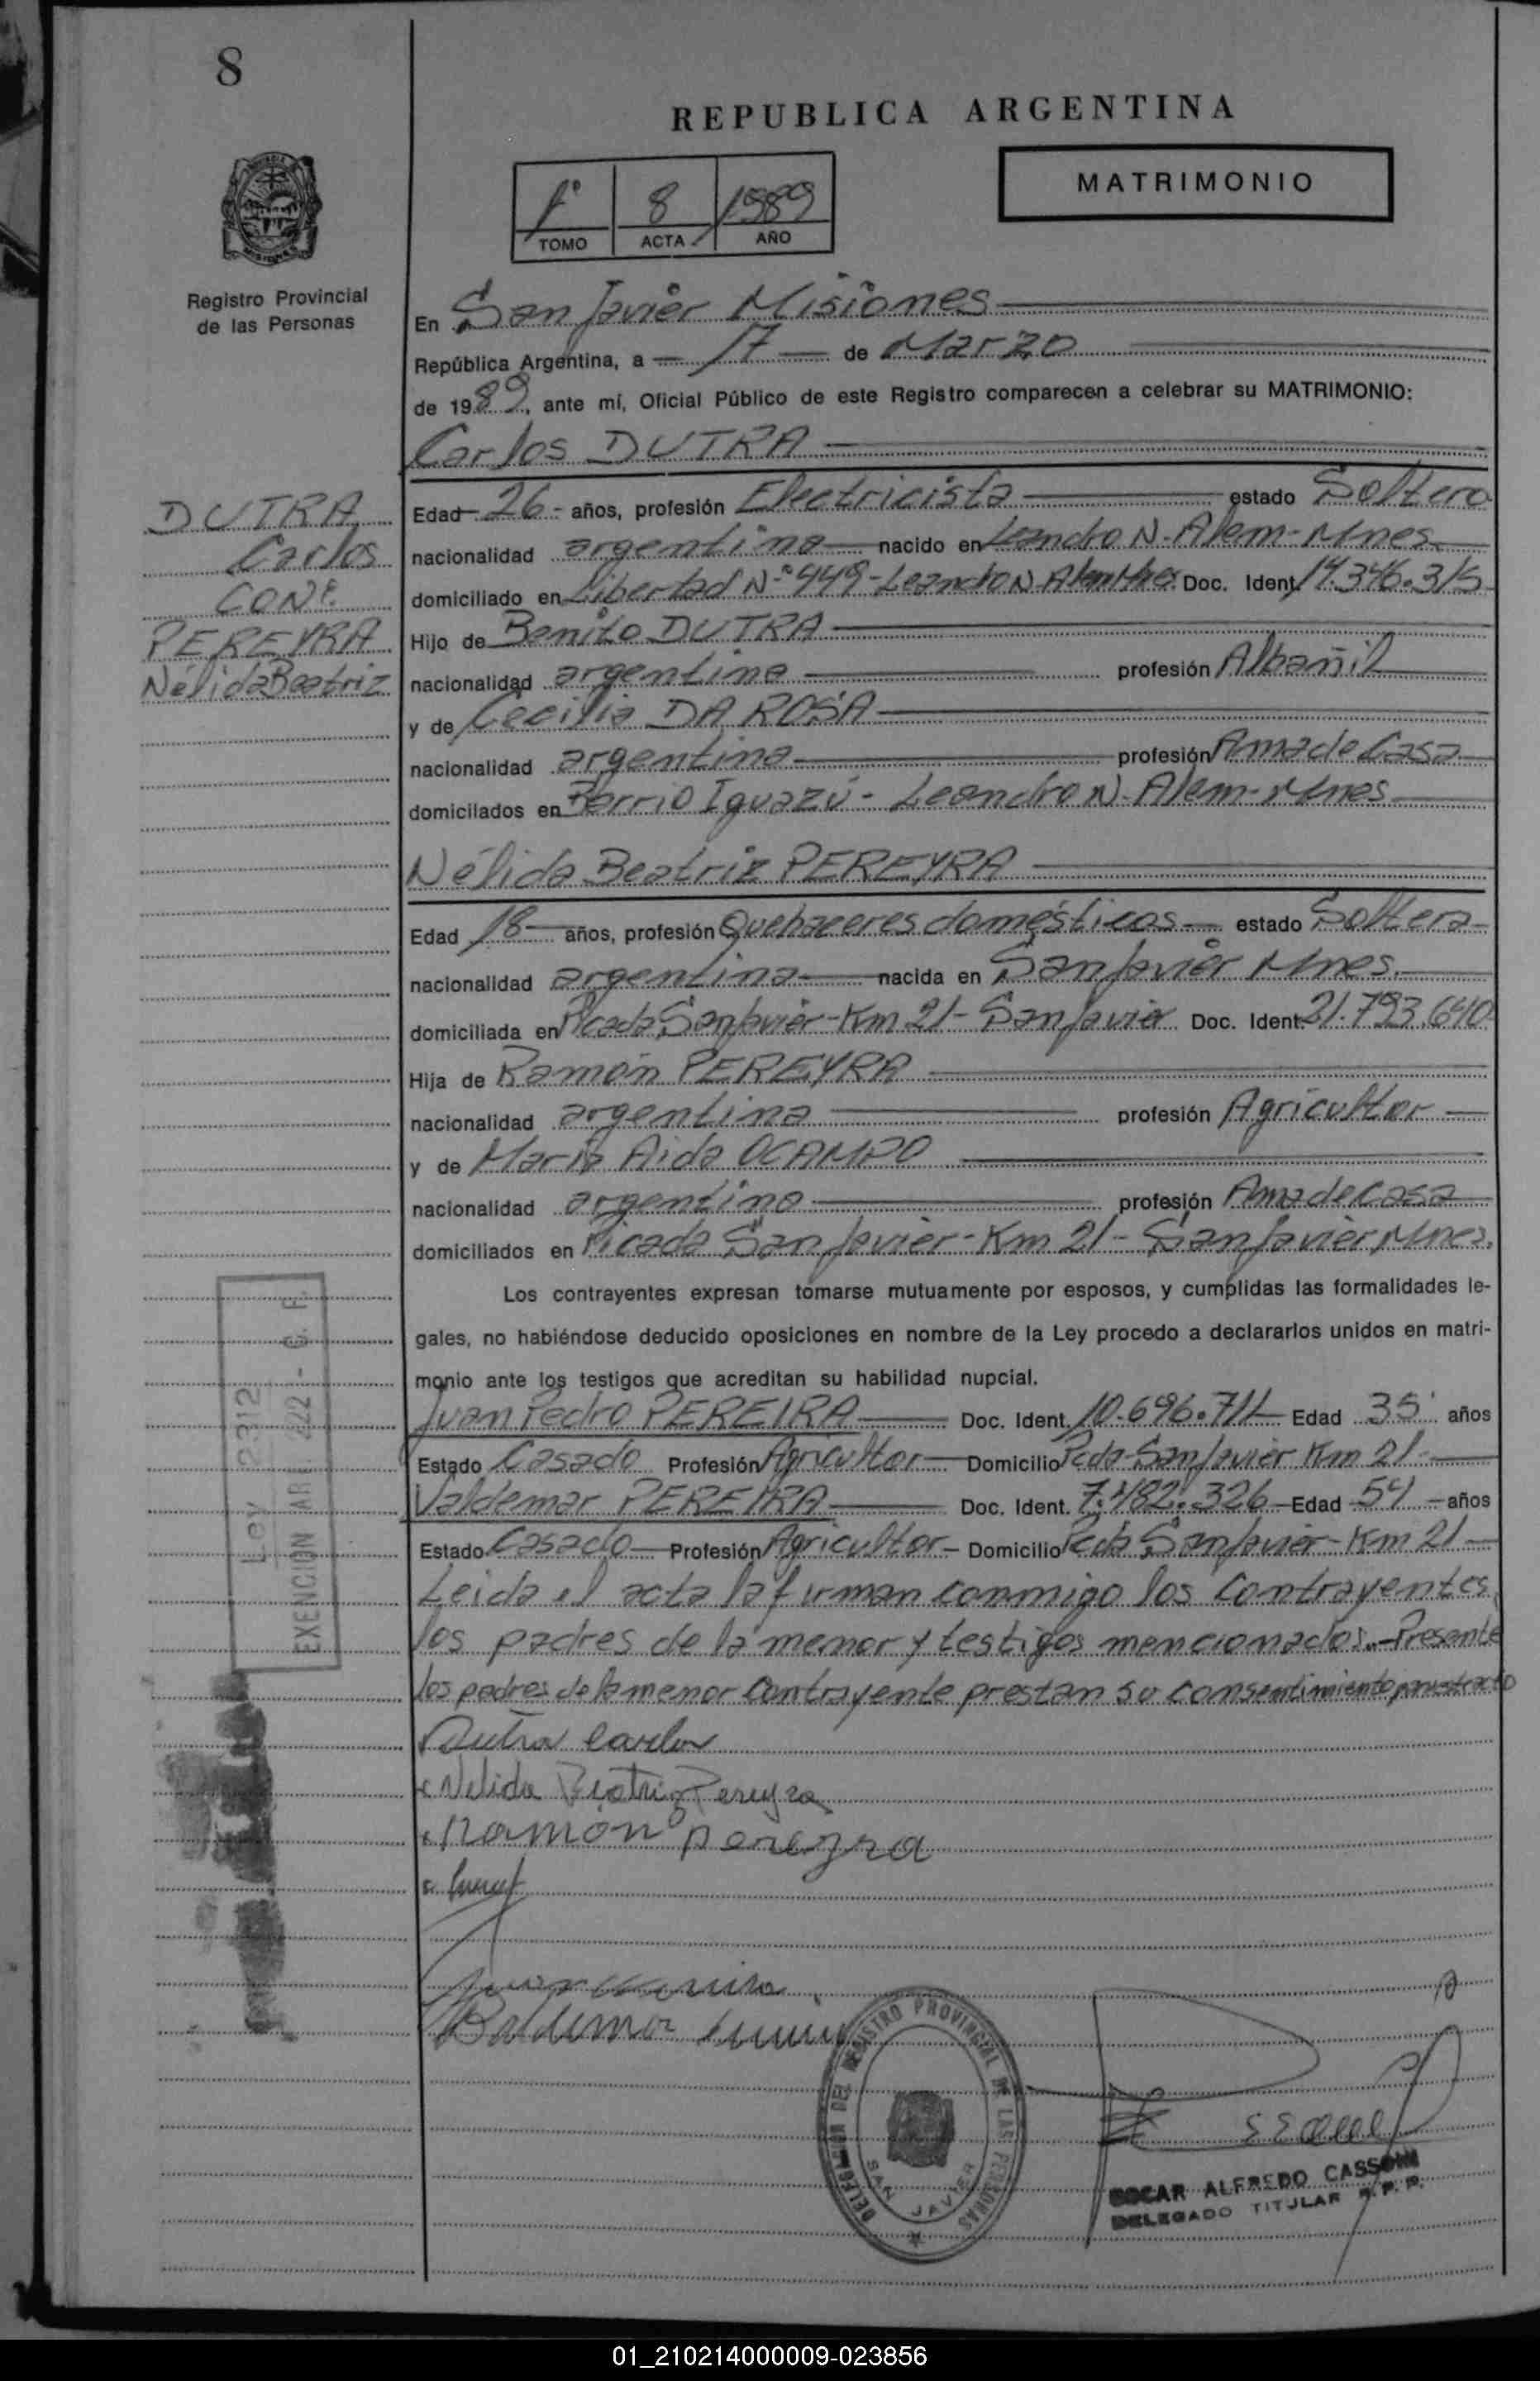 8
REPUBLICA ARGENTINA
MATRIMONIO
1º 8 1989
TOMO ACTA AÑO
Registro Provincial
de las Personas
En San Javier Misiones
República Argentina, a 17 de Marzo
de 1989, ante mí, Oficial Público de este Registro comparecen a celebrar su MATRIMONIO:
Carlos DUTRA
DUTRA
Carlos
CON:
PEREYRA
Nélida Beatriz
Edad 26 años, profesión Electricista estado Soltero
nacionalidad argentina nacido en Leandro N. Alem - Mnes.
domiciliado en Libertad Nº 449 - Leandro N. Alem Doc. Ident. 14.346.315
Hijo de Benito DUTRA
nacionalidad argentina profesión Albañil
y de Cecilia DA ROSA
nacionalidad argentina profesión Ama de Casa
domicilados en Barrio Iguazú - Leandro N. Alem - Mnes
Nélida Beatriz PEREYRA
Edad 18 años, profesión Quehaceres domésticos estado Soltera
nacionalidad argentina nacida en San Javier Mnes.
domiciliada en Picada San Javier - Km 21 - San Javier Doc. Ident. 21.793.640
Hija de Ramón PEREYRA
nacionalidad argentina profesión Agricultor
y de María Aida OCAMPO
nacionalidad argentina profesión Ama de casa
domiciliados en Picada San Javier - Km 21 - San Javier, Mnes.
Los contrayentes expresan tomarse mutuamente por esposos, y cumplidas las formalidades le-
gales, no habiéndose deducido oposiciones en nombre de la Ley procedo a declararlos unidos en matri-
monio ante los testigos que acreditan su habilidad nupcial.
Juan Pedro PEREIRA Doc. Ident. 10.696.711 Edad 35 años
Estado Casado Profesión Agricultor Domicilio Pcda San Javier Km 21
Valdemar PEREIRA Doc. Ident. 7.482.326 Edad 54 años
Estado Casado Profesión Agricultor Domicilio Pcda San Javier - Km 21
Leida el acta la firman conmigo los Contrayentes,
los padres de la menor y testigos mencionados. - Presente
los padres de la menor Contrayente prestan su consentimiento para este acto
LEY 2312
EXENCION ART. 222 - C. F.
Dutra Carlos
Nelida Beatriz Pereyra
Ramón Pereyra
DELEGACION DEL REGISTRO PROVINCIAL DE LAS PERSONAS
SAN JAVIER
OSCAR ALFREDO CASSONI
DELEGADO TITULAR R. P. P.
01_210214000009-023856